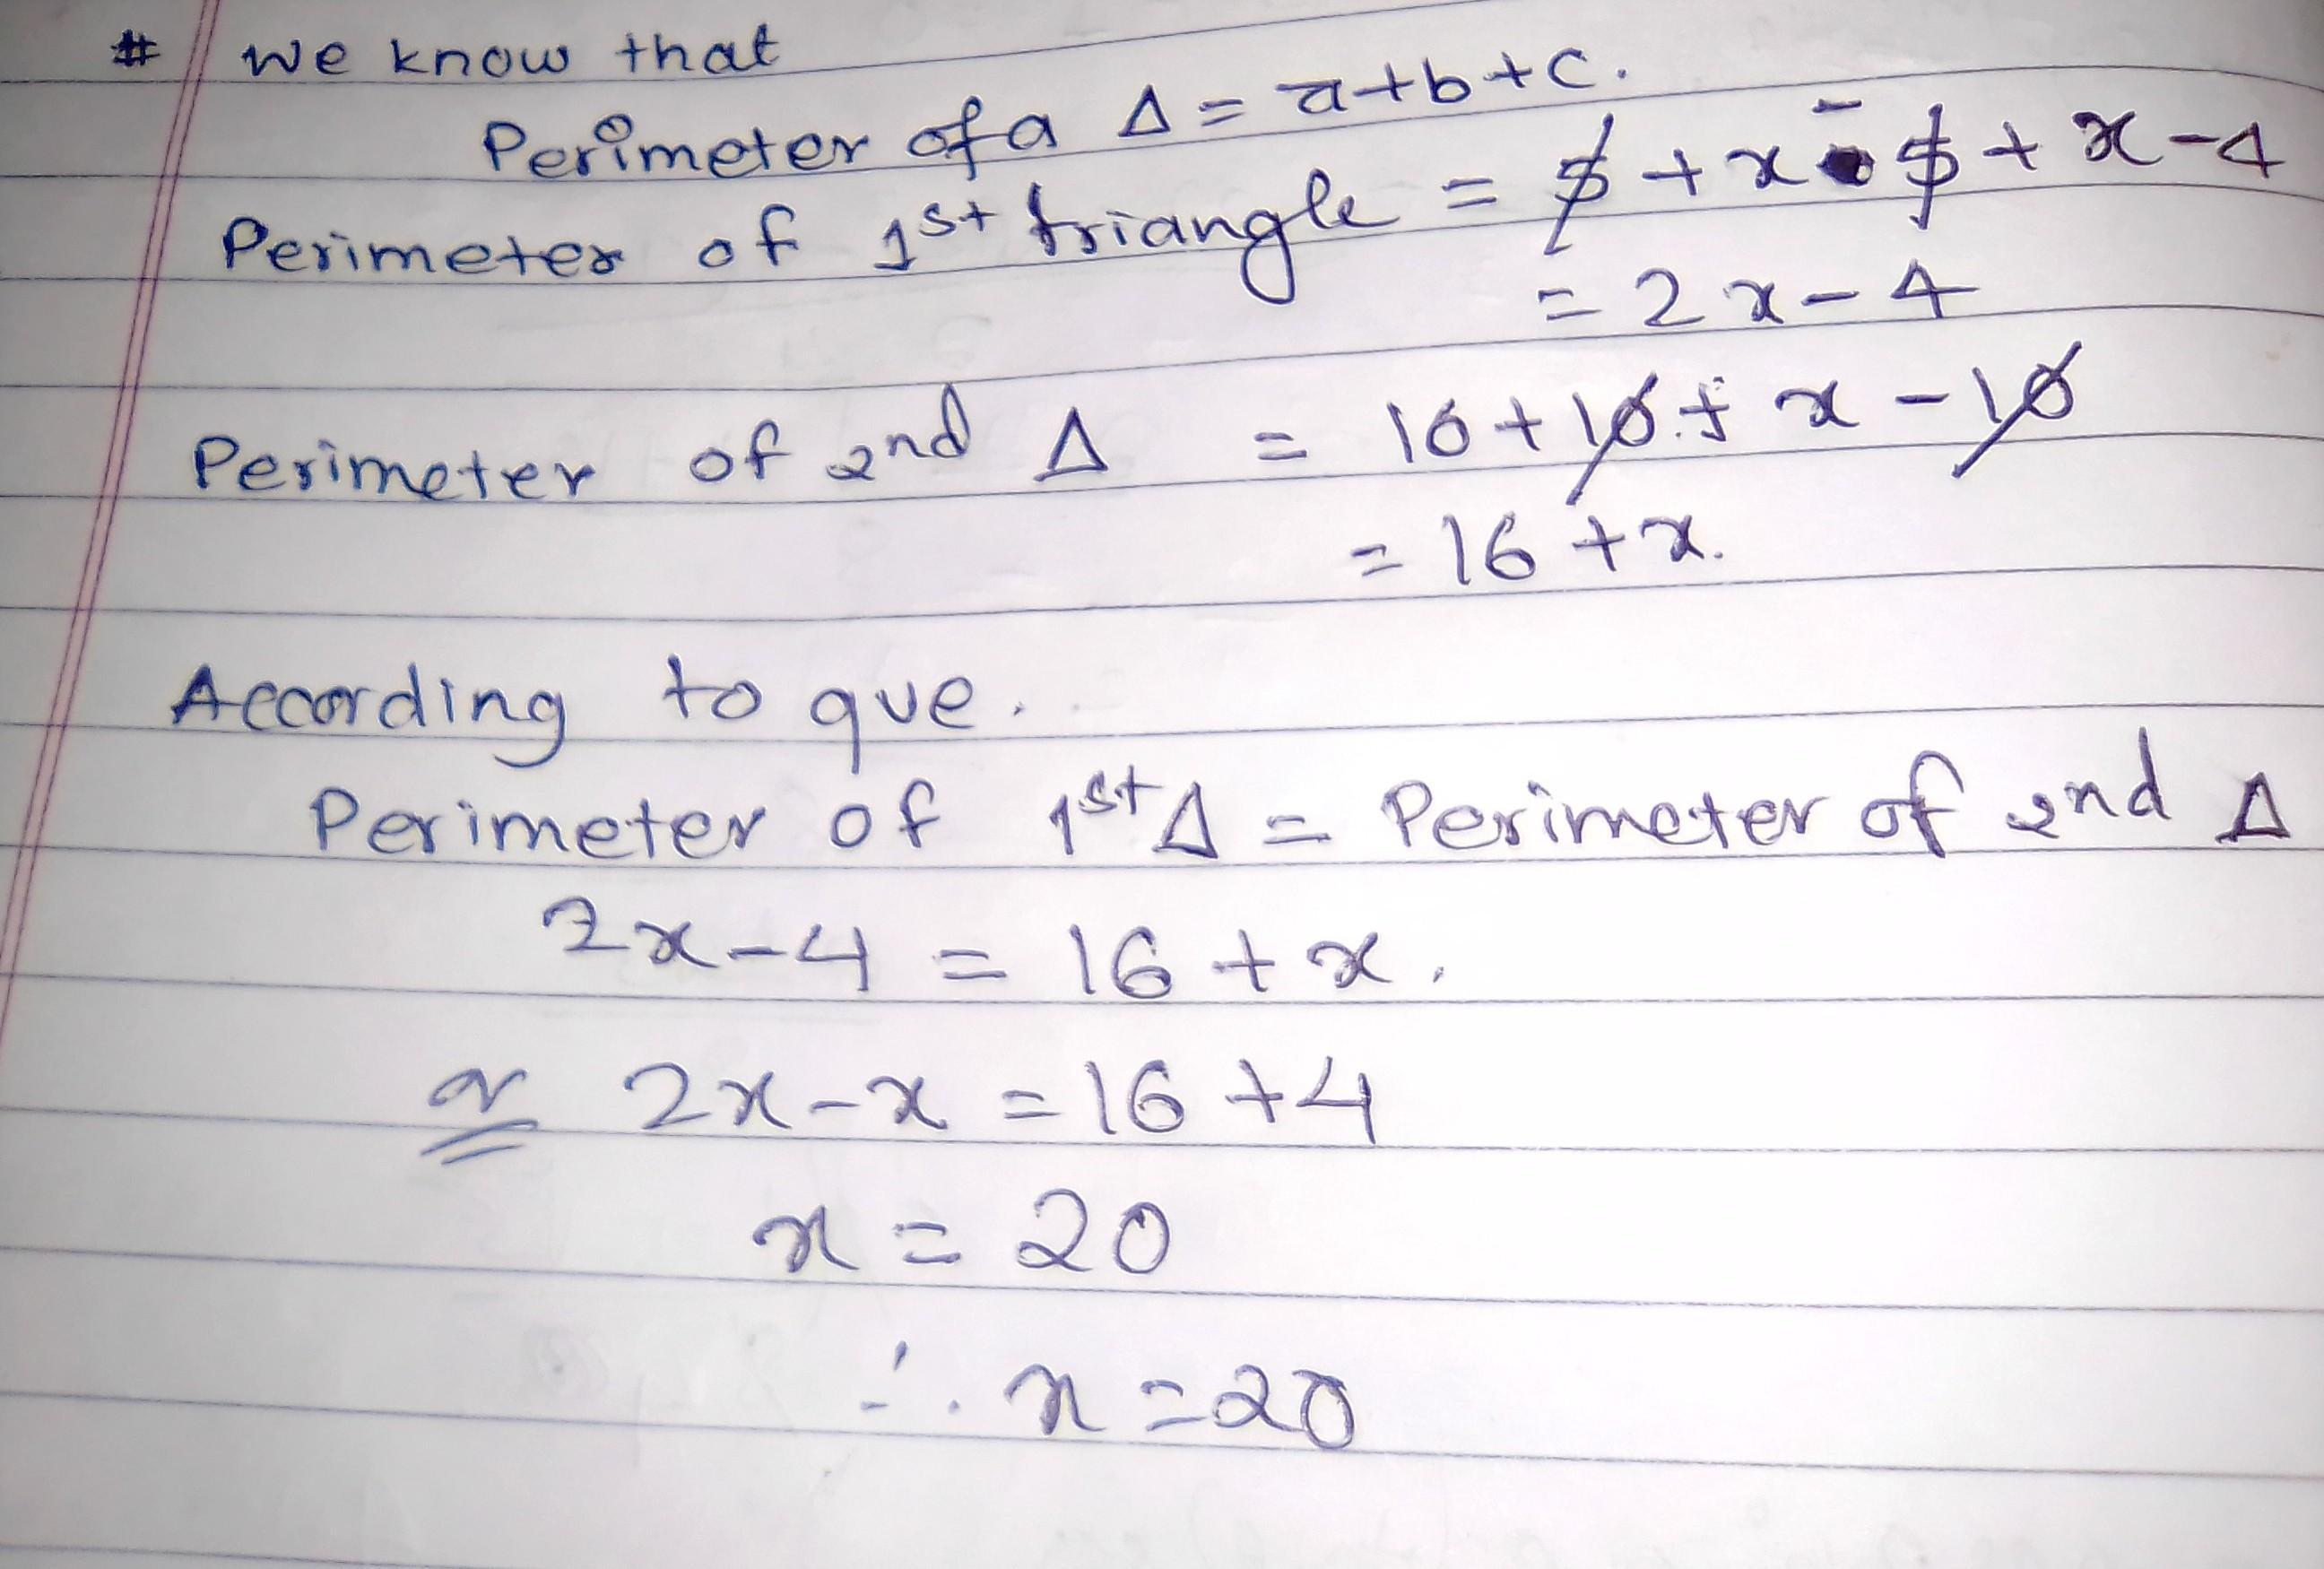 # We know that
Perimeter of a Δ = a+b+c.
Perimeter of 1st triangle = 5 + x - 5 + x - 4
= 2x - 4
Perimeter of 2nd Δ = 16 + 10 + x - 10
= 16 + x.
According to que.
Perimeter of 1st Δ = Perimeter of 2nd Δ
2x - 4 = 16 + x.
or 2x - x = 16 + 4
x = 20
∴ x = 20